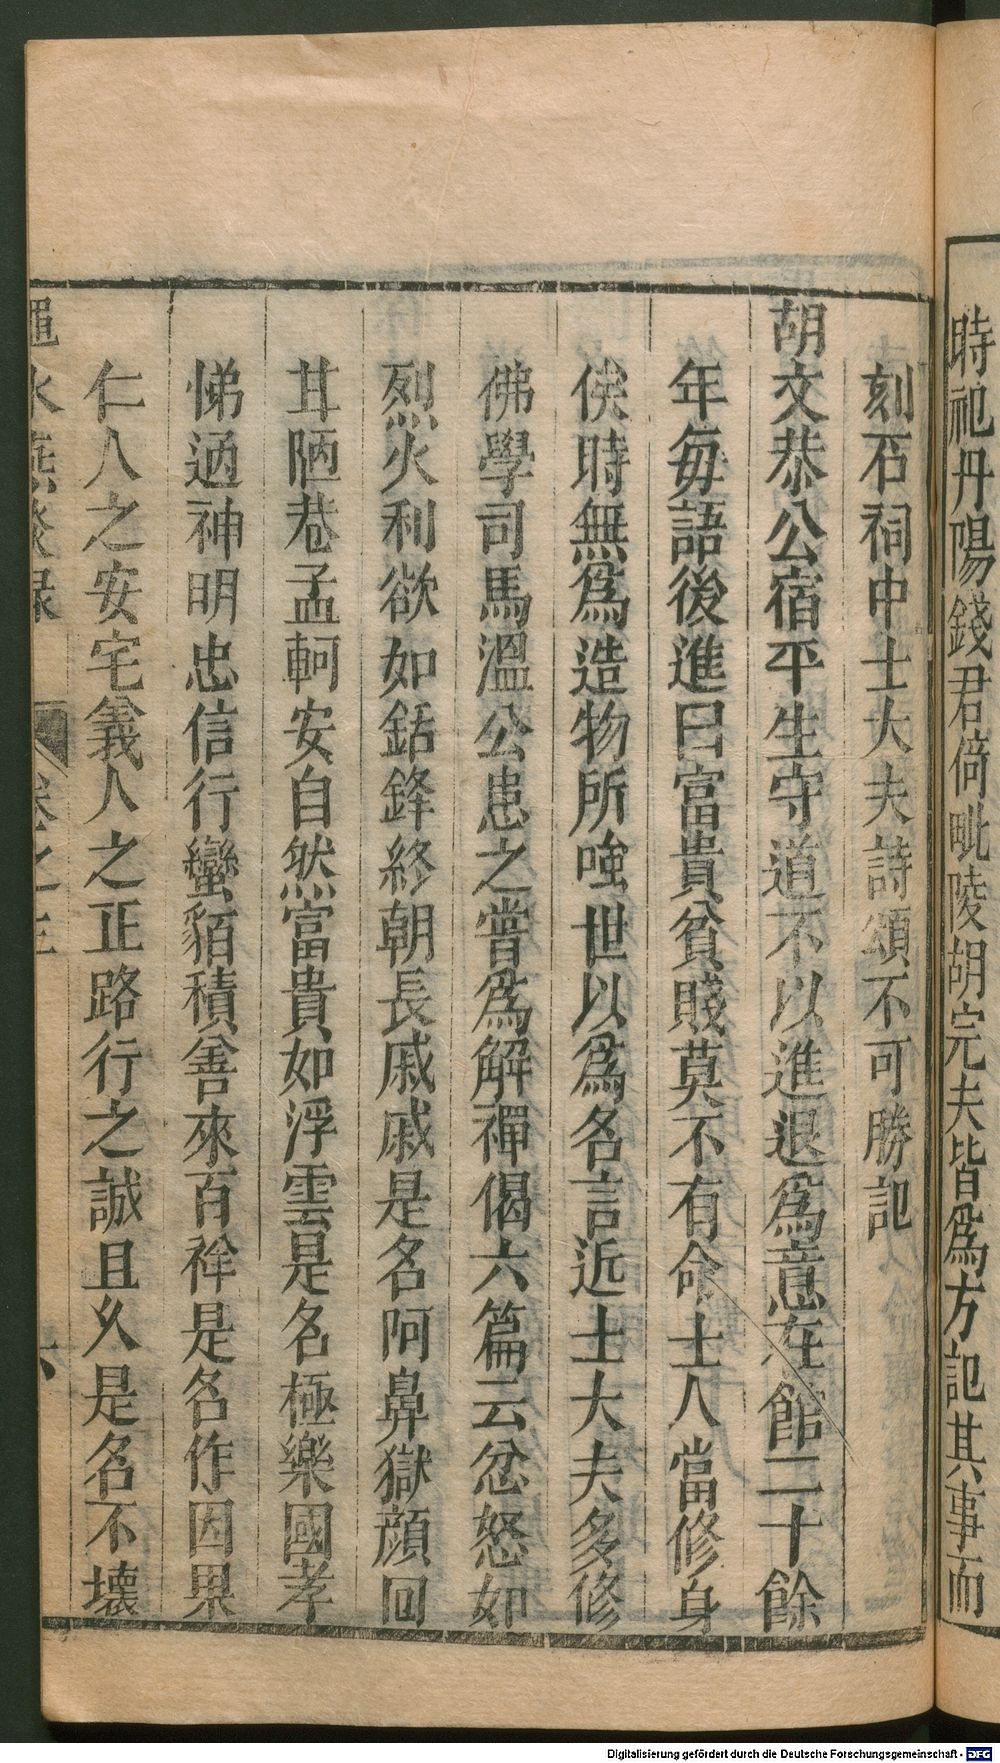 時祀丹陽錢君倚毗陵胡完夫皆爲方記其事而
刻石祠中士大夫詩頌不可勝記
胡文恭公宿平生守道不以進退爲意在館二十餘
年每語後進曰富貴貧賤莫不有命士人當修身
俟時無爲造物所嗤世以爲名言近士大夫多修
佛學司馬溫公患之嘗爲解禪偈六篇云忿怒如
烈火利欲如銛鋒終朝長戚戚是名阿鼻獄顔回
甘陋巷孟軻安自然富貴如浮雲是名極樂國孝
悌通神明忠信行蠻貊積善來百祥是名作因果
仁人之安宅義人之正路行之誠且久是名不壞
澠水燕談錄 卷之三 六
Digitalisierung gefördert durch die Deutsche Forschungsgemeinschaft - DFG